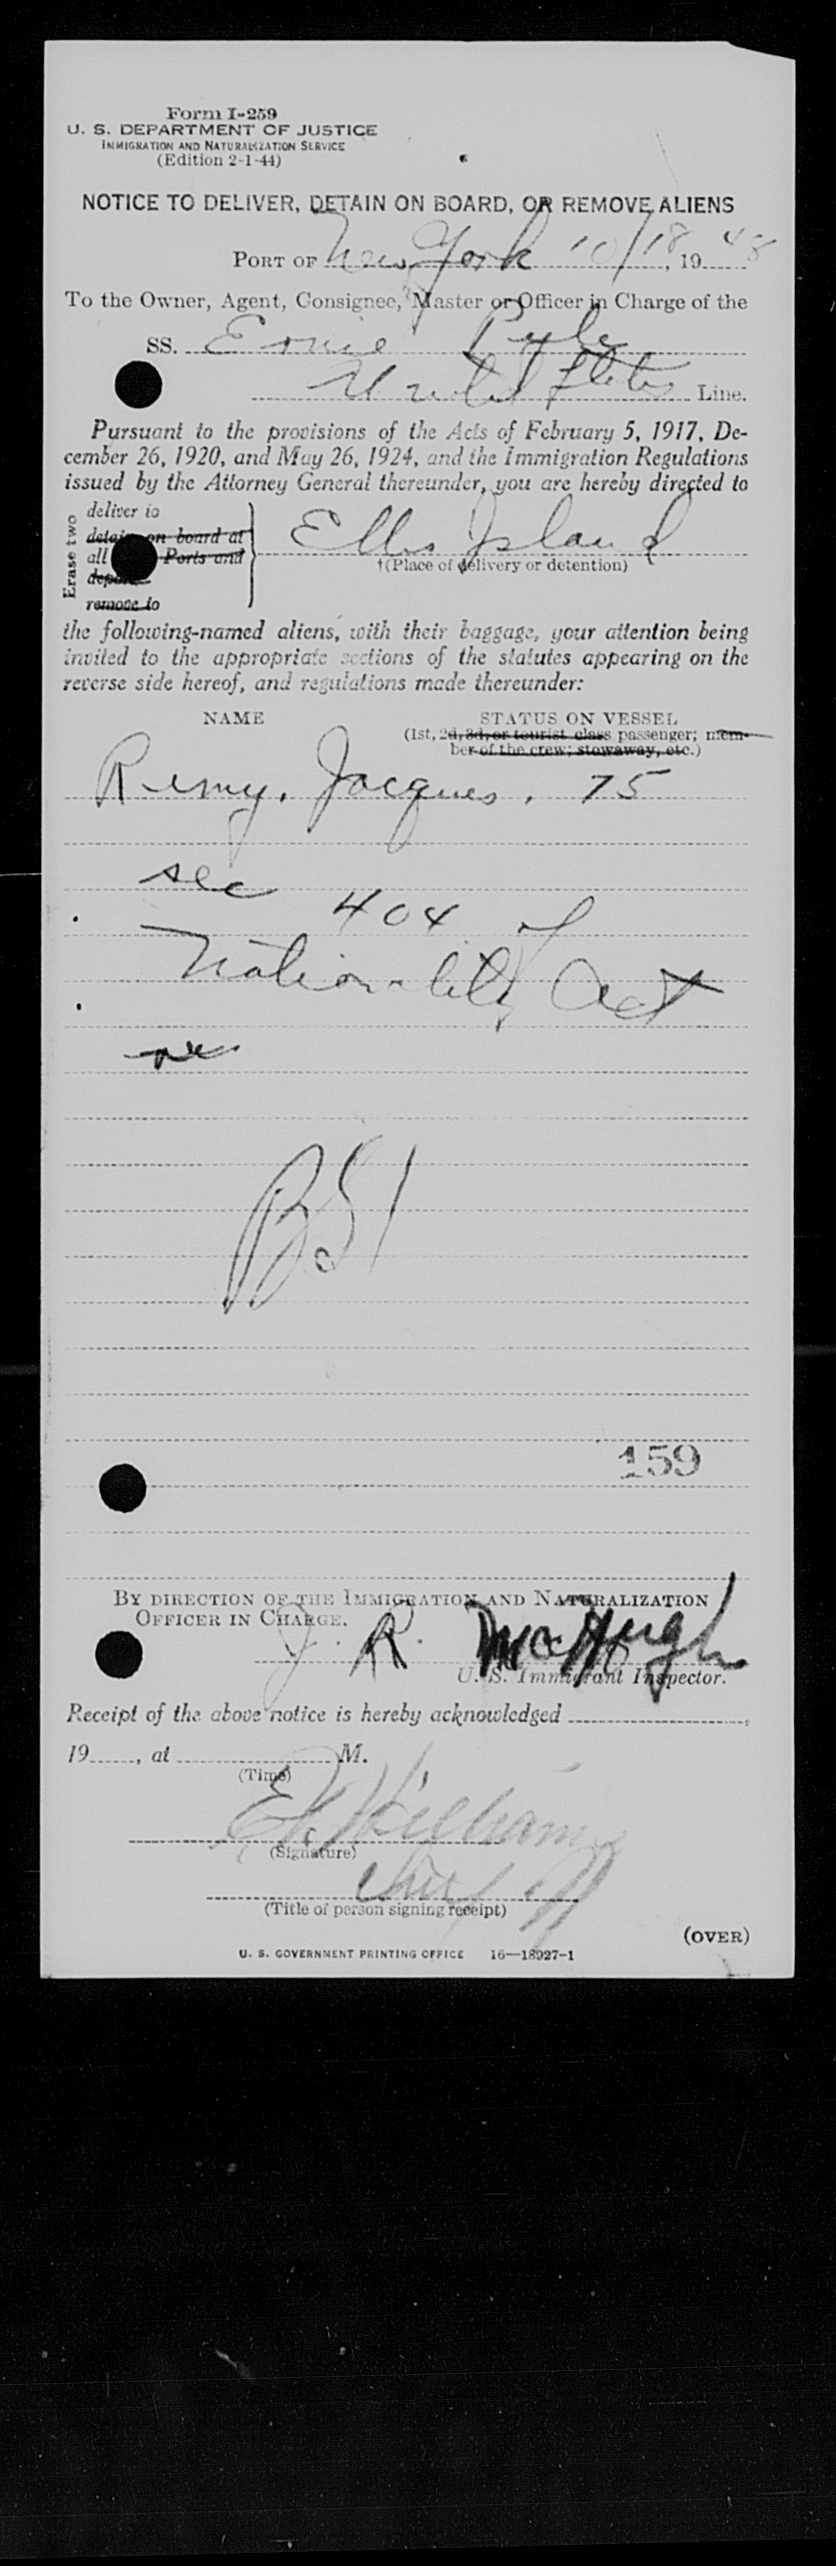 Form I-259
U. S. DEPARTMENT OF JUSTICE
IMMIGRATION AND NATURALIZATION SERVICE
(Edition 2-1-44)
NOTICE TO DELIVER, DETAIN ON BOARD, OR REMOVE ALIENS
PORT OF New York 10/18, 1948
To the Owner, Agent, Consignee, Master or Officer in Charge of the
SS. Ernie Pyle
United States Line.
Pursuant to the provisions of the Acts of February 5, 1917, De-
cember 26, 1920, and May 26, 1924, and the Immigration Regulations
issued by the Attorney General thereunder, you are hereby directed to
Erase two
deliver to
detain on board at
all Ports and
remove to
Ellis Island
†(Place of delivery or detention)
the following-named aliens, with their baggage, your attention being
invited to the appropriate sections of the statutes appearing on the
reverse side hereof, and regulations made thereunder:
NAME STATUS ON VESSEL
(1st, 2d, 3d, or tourist class passenger; mem-
ber of the crew; stowaway, etc.)
Remy, Jacques, 75
sec 404 of
Nationality Act
BSI
159
BY DIRECTION OF THE IMMIGRATION AND NATURALIZATION
OFFICER IN CHARGE.
J. R. McHugh
U. S. Immigrant Inspector.
Receipt of the above notice is hereby acknowledged
19 , at M.
(Time)
Williams
(Signature)
Chief
(Title of person signing receipt)
(OVER)
U. S. GOVERNMENT PRINTING OFFICE 16—18927-1